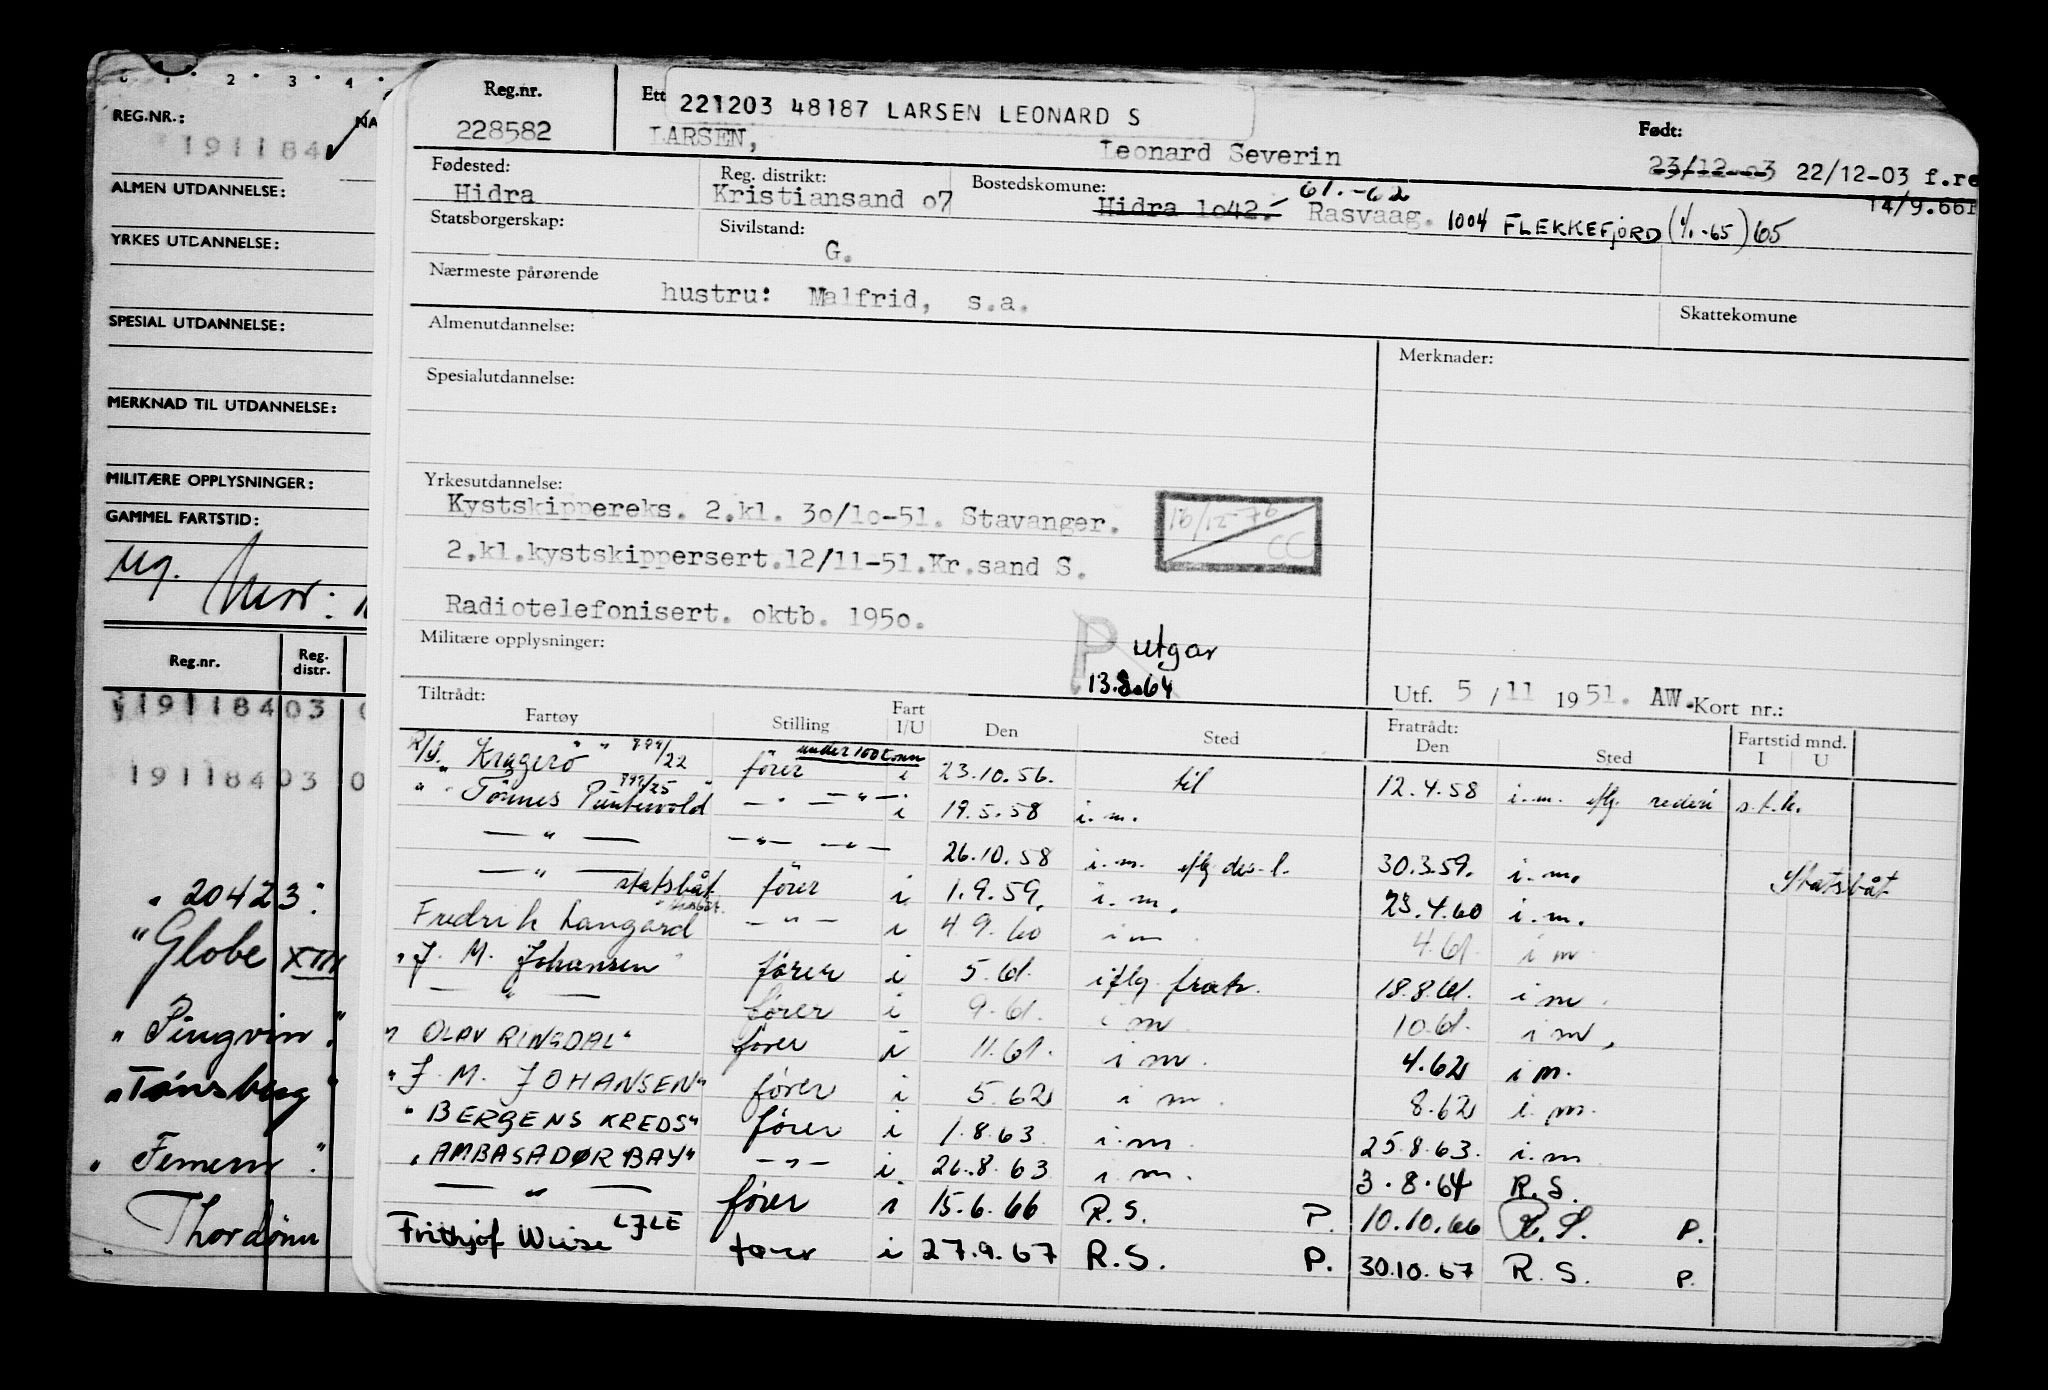 1 · 2 · 3 · 4 ·
REG.NR.: NA
191184 ✓
ALMEN UTDANNELSE:
YRKES UTDANNELSE:
SPESIAL UTDANNELSE:
MERKNAD TIL UTDANNELSE:
MILITÆRE OPPLYSNINGER:
GAMMEL FARTSTID:
Reg.nr. Reg. distr.
191184 03 0
191184 03 0
"20423"
"Globe XIII
"Pingvin"
"Tönsberg"
"Femern"
"Thordönn
Reg.nr. Ett 221203 48187 LARSEN LEONARD S Født:
228582 LARSEN, Leonard Severin 23/12-03 22/12-03 f.re
14/9.66
Fødested: Reg. distrikt: Bostedskomune: 61.-62
Hidra Kristiansand o7 Hidra 1o42.- Rasvaag. 1004 FLEKKEFJORD (1/1-65) 65
Statsborgerskap: Sivilstand:
G.
Nærmeste pårørende
hustru: Malfrid, s.a.
Skattekomune
Almenutdannelse: Merknader:
Spesialutdannelse:
Yrkesutdannelse:
Kystskippereks. 2.kl. 3o/1o-51. Stavanger. 16/12-76
2.kl.kystskippersert.12/11-51.Kr.sand S. CC
Radiotelefonisert. oktb. 195o.
Militære opplysninger: P utgar
13.8.64
Utf. 5 /11 1951. AW. Kort nr.:
Tiltrådt: Fratrådt:
Fartøy Stilling Fart I/U Den Sted Den Sted Fartstid mnd. I U
R/S. "Kragerö" 22 fører under 100 tonn i 23.10.56. til 12.4.58 i.m. iflg rederi s.t.k.
" "Tönnes Puntervold" 25 — " — — " — i 19.5.58 i.m.
— " — — " — — " — 26.10.58 i.m. 30.3.59. i.m. Statsbåt
— " — statsbåt fører i 1.9.59. i.m. 23.4.60 i.m.
Fredrik Langård — " — i 4 9.60 i m 4.61 i m
"J. M. Johansen" fører i 5.61. iflg. fratr. 18.8.61. i m.
— " — fører i 9.61. i m 10.61. i m.
"OLAV RINGDAL" fører i 11.61. i m. 4.62 i m.
"J. M. JOHANSEN" fører i 5.62 i m. 8.62 i.m.
"BERGENS KREDS" fører i 1.8.63 i.m. 25.8.63. i.m
"AMBASADØR BAY" — " — i. 26.8.63 i m. 3.8.64 R.S.
— " — fører i 15.6.66 R.S. P. 10.10.66 R.S. P.
Frithjof Wiese LJLE fører i 27.9.67 R.S. P. 30.10.67 R.S. P.